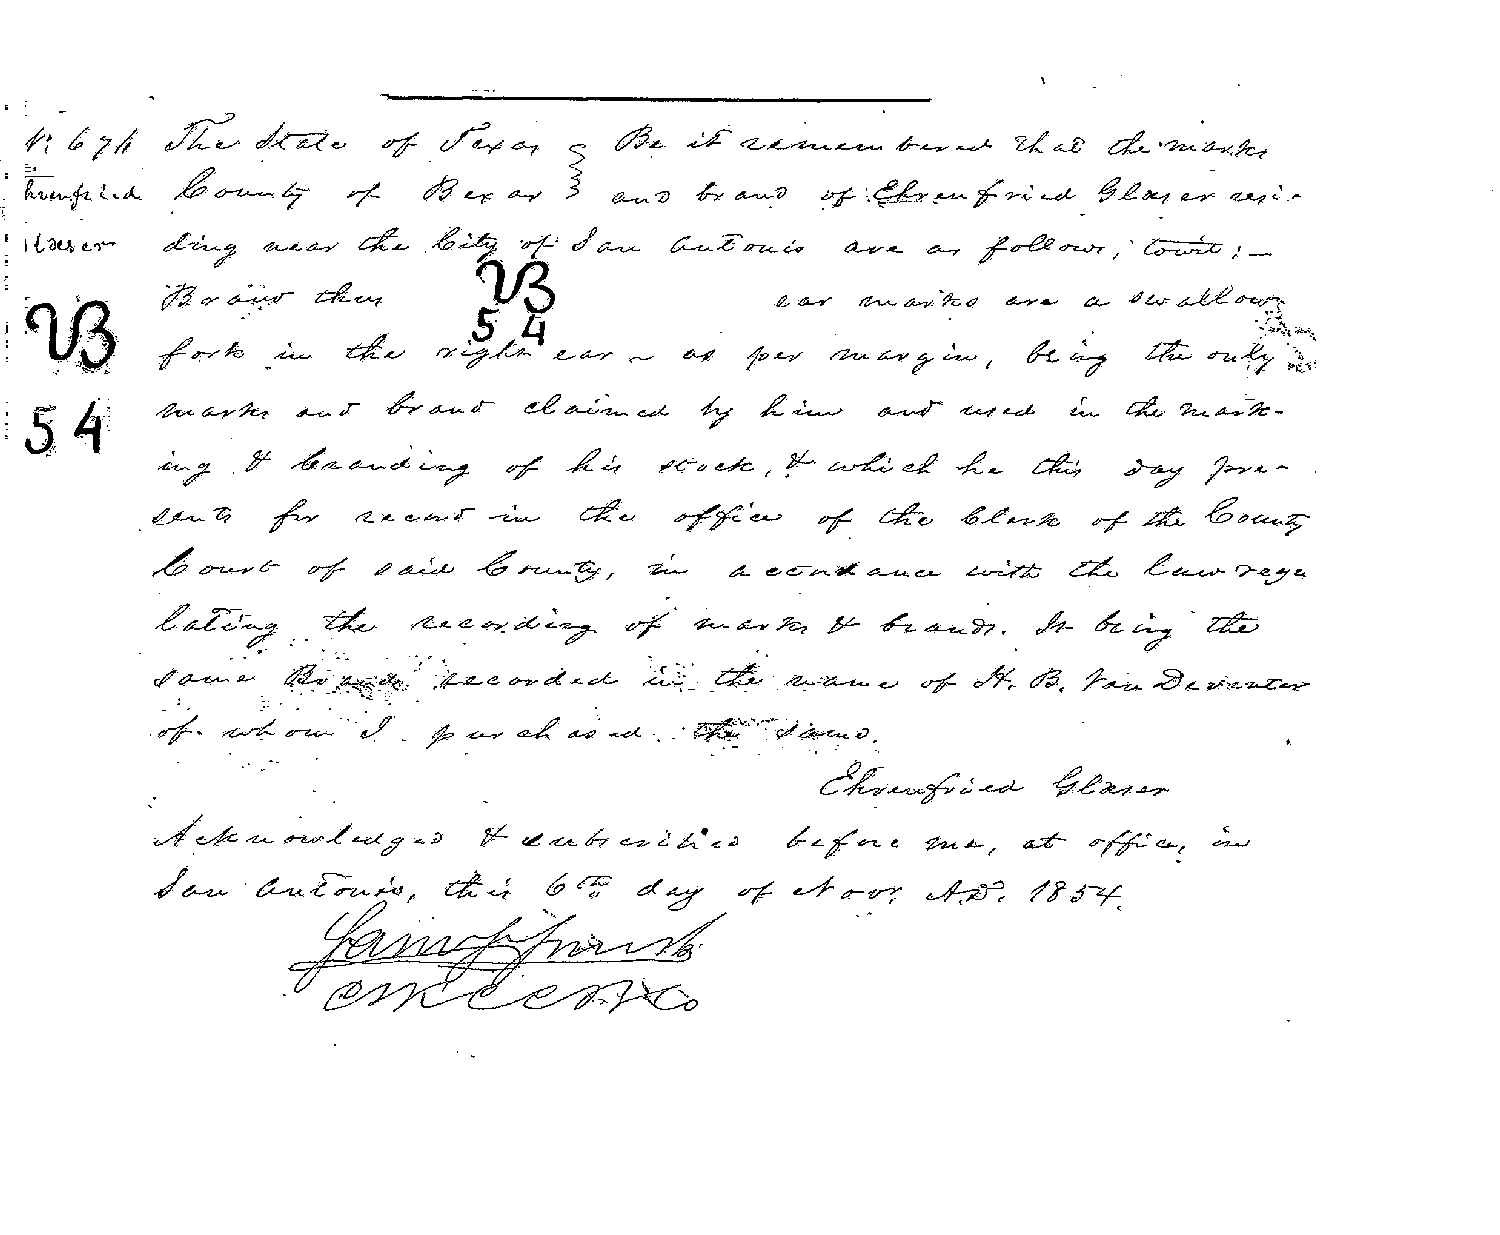 The State of Texas } Be it remembered that the marks
County of Bexar } and brand of Ehrenfried Glaser resi-
ding near the City of San Antonio are as follows, towit: —
Brand thus VB ear marks are a swallow
54
fork in the right ear — as per margin, being the only
marks and brand claimed by him and used in the mark-
ing & branding of his stock, & which he this day pre-
sents for record in the office of the Clerk of the County
Court of said County, in accordance with the law regu
lating the recording of marks & brands. It being the
same Brand recorded in the name of H. B. Van Deventer
of whom I purchased the same.
Ehrenfried Glaser
Acknowledged & subscribed before me, at office, in
San Antonio, this 6th day of Novr. A.D. 1854.
hrenfried
laser
VB
54